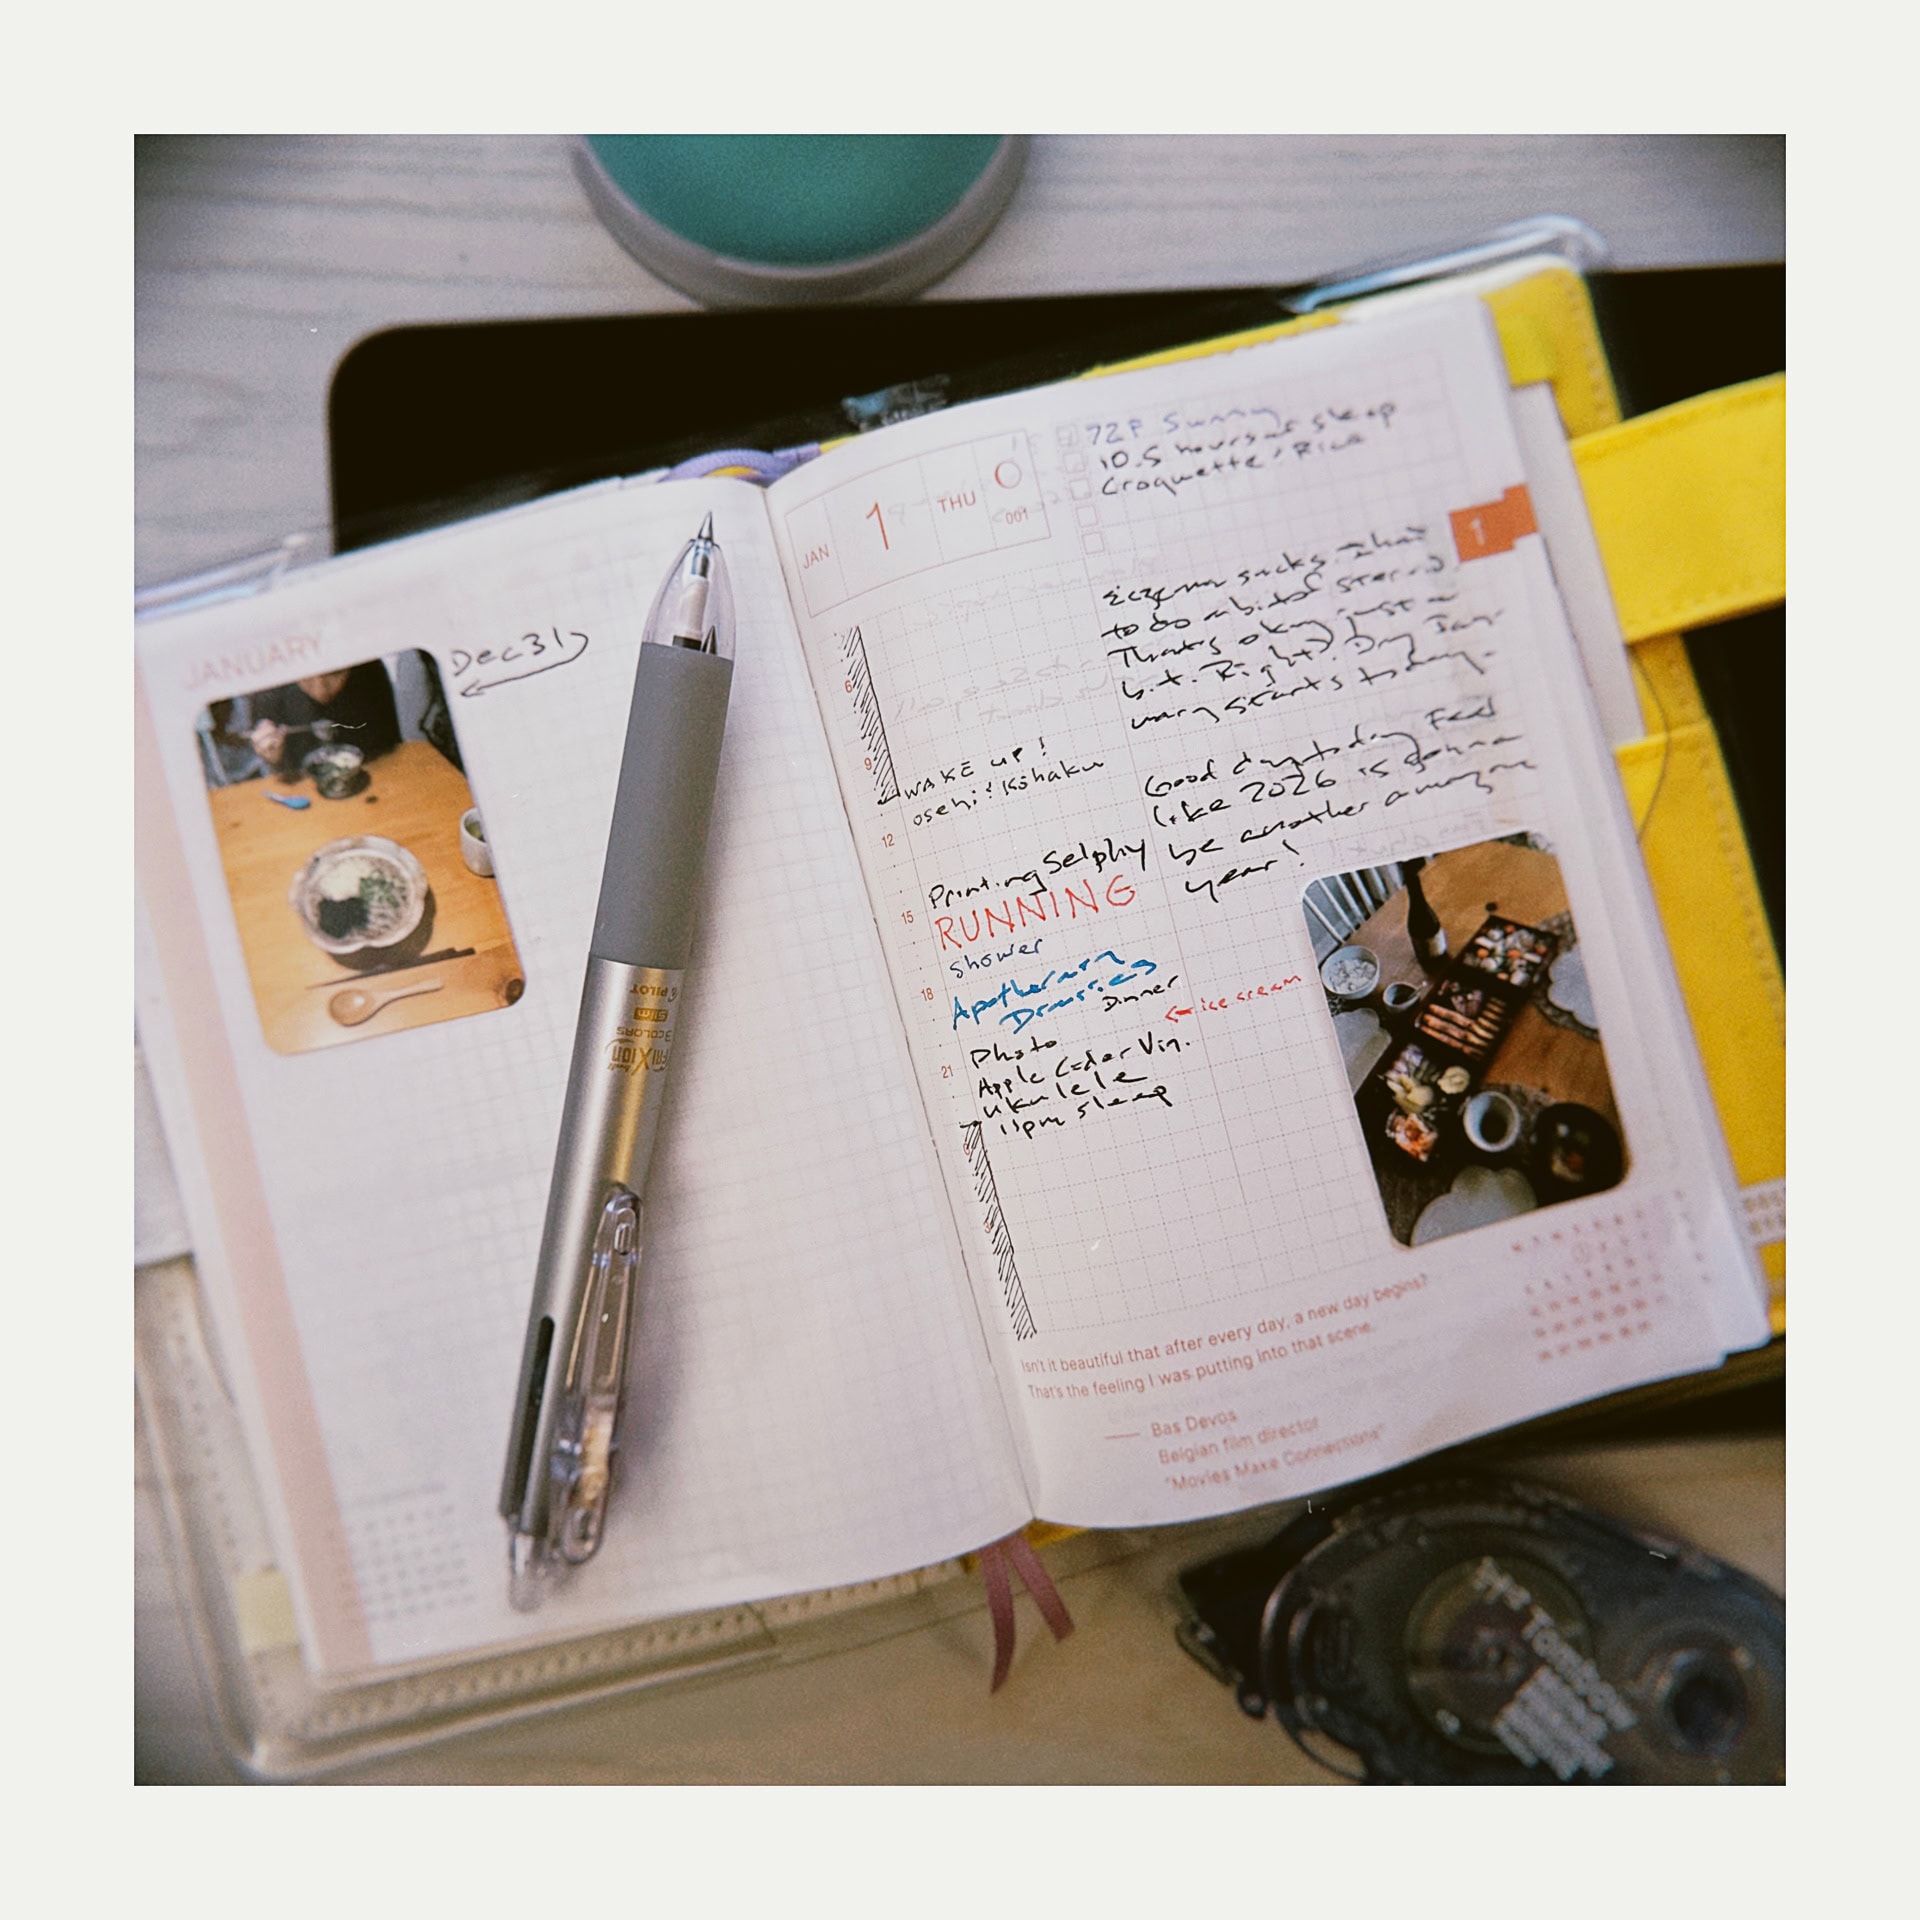 JANUARY
Dec 31
PILOT
Slim
3 COLORS
FRIXION
JAN 1 THU 001
72F Sunny
10.5 hours of sleep
Croquette, Rice
1
Eczema sucks. I had
to do a bit of steroid
That's okay just a
bit. Right? Dry Jan-
uary starts today.
Good day today Feel
like 2026 is gonna
be another amazing
year!
6
9
WAKE UP!
osehi & Kohaku
12
Printing Selphy
15
RUNNING
shower
18
Apothecary
Diaries
Dinner
← ice cream
Photo
21
Apple Cider Vin.
ukulele
11pm sleep
3
Isn't it beautiful that after every day, a new day begins?
That's the feeling I was putting into that scene.
Bas Devos
Belgian film director
"Movies Make Connections"
Tombow